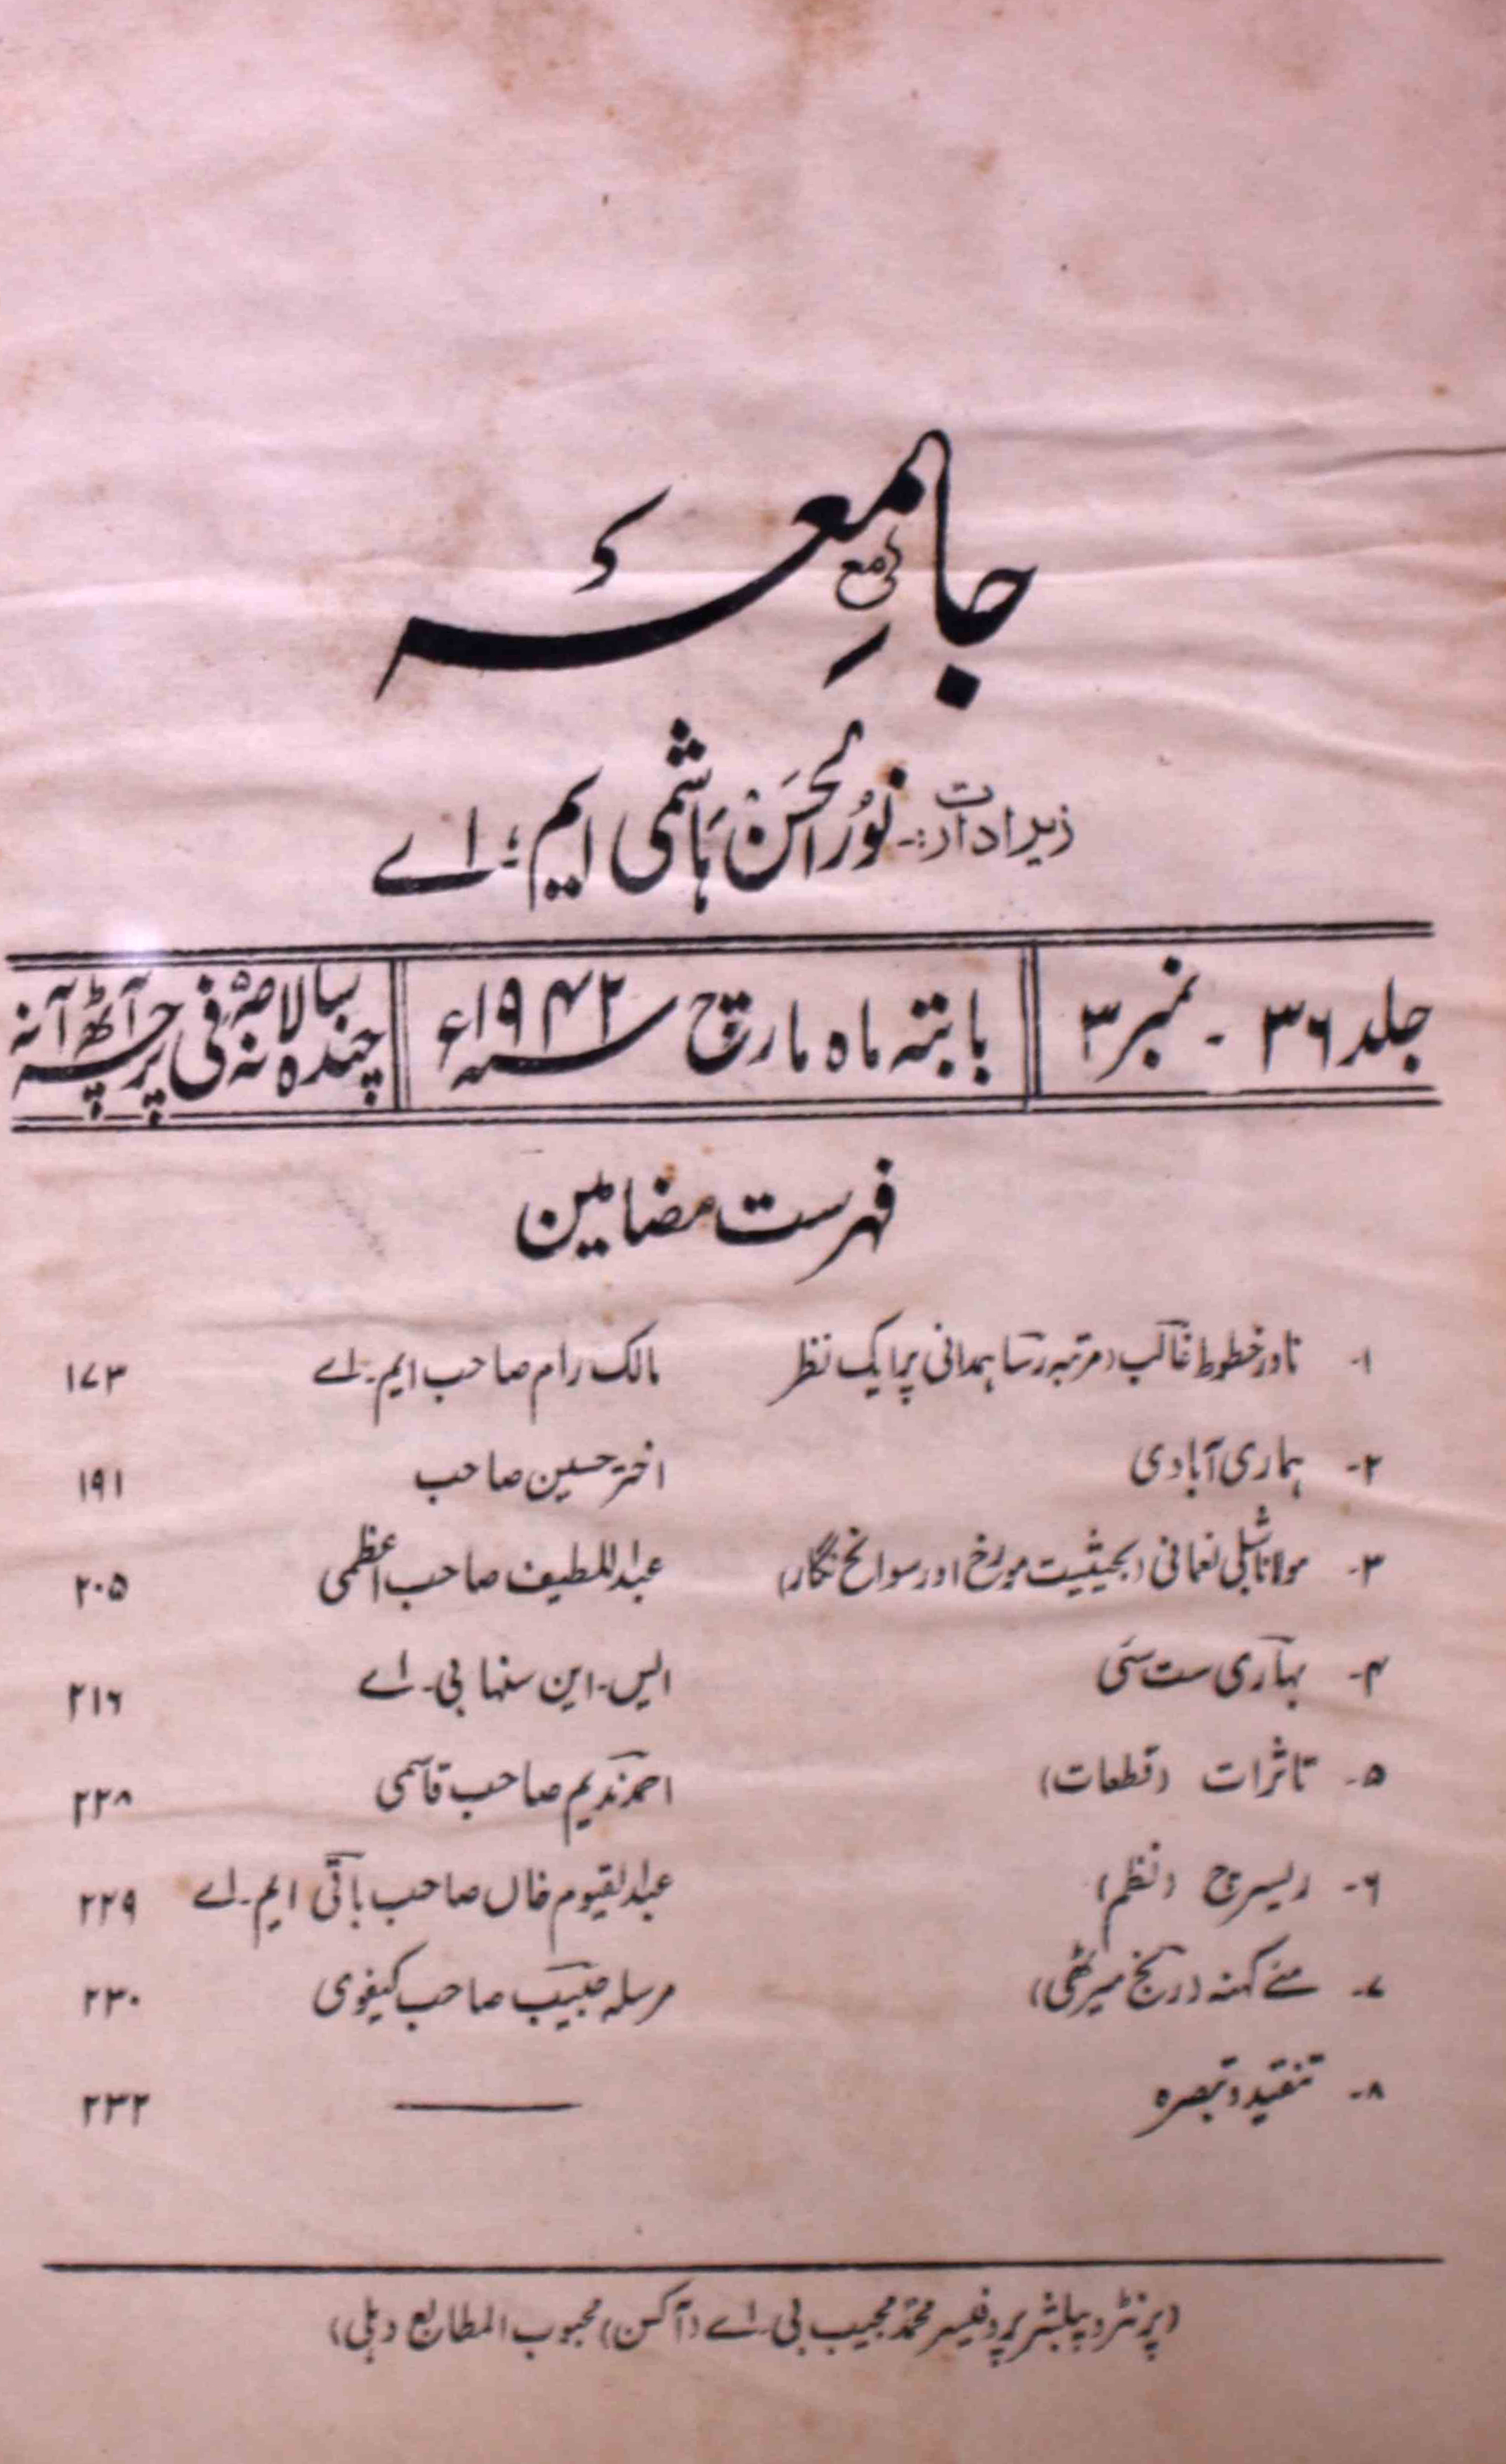 جامعہ
زیر ادارت:۔ نورالحسن ہاشمی ایم؛ اے
جلد ۳۶ ۔ نمبر ۳
بابتہ ماہ مارچ سنہ ۱۹۴۲ء
چندہ سالانہ فی پرچہ آٹھ آنہ
فہرست مضامین
۱۔ نادر خطوط غالب (مرتبہ رسا ہمدانی پر ایک نظر مالک رام صاحب ایم۔ اے ۱۷۳
۲۔ ہماری آبادی اختر حسین صاحب ۱۹۱
۳۔ مولانا شبلی نعمانی (بحیثیت مورخ اور سوانح نگار) عبداللطیف صاحب اعظمی ۲۰۵
۴۔ بہاری ست سئی ایس۔ این سنہا بی۔ اے ۲۱۶
۵۔ تاثرات (قطعات) احمد ندیم صاحب قاسمی ۲۲۸
۶۔ ریسرچ (نظم) عبدالقیوم خاں صاحب باقی ایم۔ اے ۲۲۹
۷۔ مئے کہنہ (رنج میرٹھی) مرسلہ حبیب صاحب کیفوی ۲۳۰
۸۔ تنقید و تبصرہ ۲۳۲
(پرنٹر و پبلشر پروفیسر محمد مجیب بی۔ اے (آکسن) محبوب المطابع دہلی)